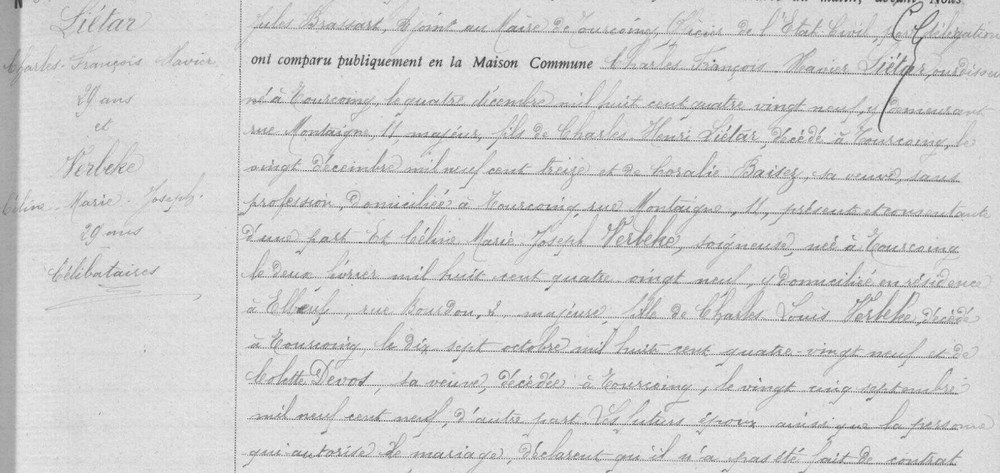 Liétar
Charles François Xavier
29 ans
et
Verbeke
Céline Marie Joseph
29 ans
Célibataires
Jules Brassart, Adjoint au Maire de Tourcoing, Officier de l'Etat Civil, par délégation
ont comparu publiquement en la Maison Commune Charles François Xavier Liétar, ourdisseur
né à Tourcoing, le quatre décembre mil huit cent quatre vingt neuf, y demeurant
rue Montaigne, 11, majeur, fils de Charles Henri Liétar, décédé à Tourcoing, le
vingt décembre mil neuf cent treize et de Coralie Baisez, sa veuve, sans
profession, domiciliée à Tourcoing, rue Montaigne, 11, présente et consentante
d'une part. Et Céline Marie Joseph Verbeke, soigneuse, née à Tourcoing
le deux février mil huit cent quatre vingt neuf, y domiciliée en résidence
à Elbeuf, rue Bourdon, 2, majeure, fille de Charles Louis Verbeke, décédé
à Tourcoing, le dix sept octobre mil huit cent quatre-vingt neuf et de
Colette Devos, sa veuve, décédée à Tourcoing, le vingt cinq septembre
mil neuf cent neuf, d'autre part. Les futurs époux ainsi que la personne
qui autorise le mariage, déclarent qu'il n'a pas été fait de contrat